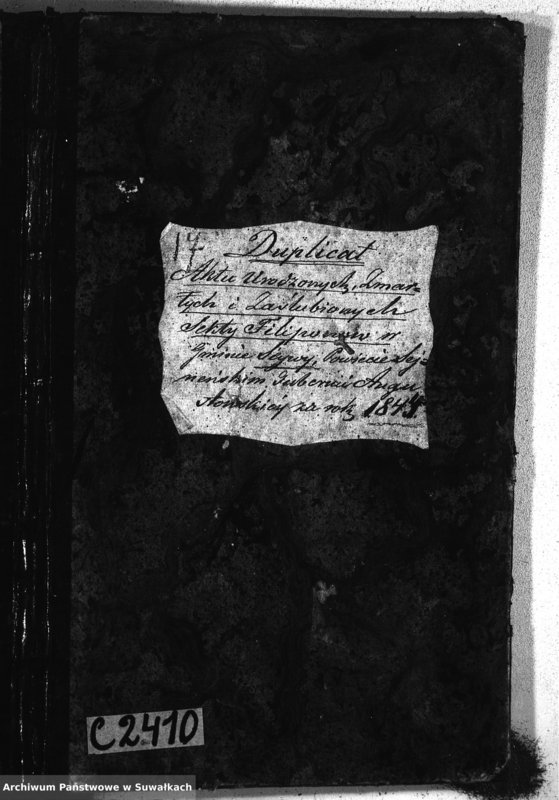 17
Duplicat
Aktu Urodzonych, Zmar-
łych i Zaślubionych
Sekty Filiponow w
Gminie Powiecie Sej-
neńskim Gubernii Augu-
stowskiéj za rok 1848
C2410
Archiwum Państwowe w Suwałkach